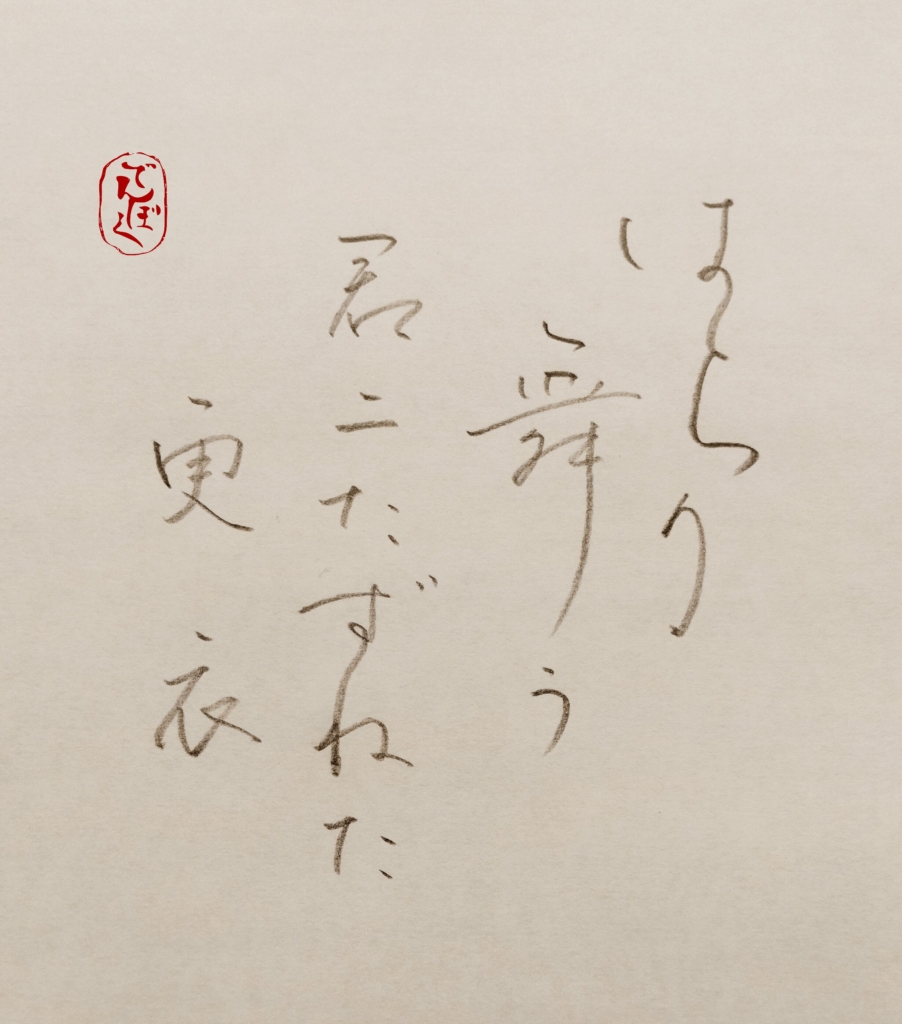 はらり
舞う
君ニたずねた
更衣
でんぼく